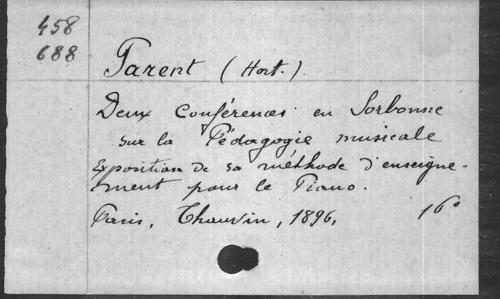 458
688
Parent (Hort.).
Deux Conférences en Sorbonne
sur la Pédagogie musicale
Exposition de sa méthode d'enseigne-
ment pour le Piano.
Paris, Thauvin, 1896, 16°